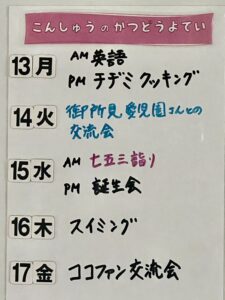 こんしゅうのかつどうよてい
13 月 AM 英語
PM チヂミ クッキング
14 火 御所見愛児園さんとの
交流会
15 水 AM 七五三詣り
PM 誕生会
16 木 スイミング
17 金 ココファン交流会